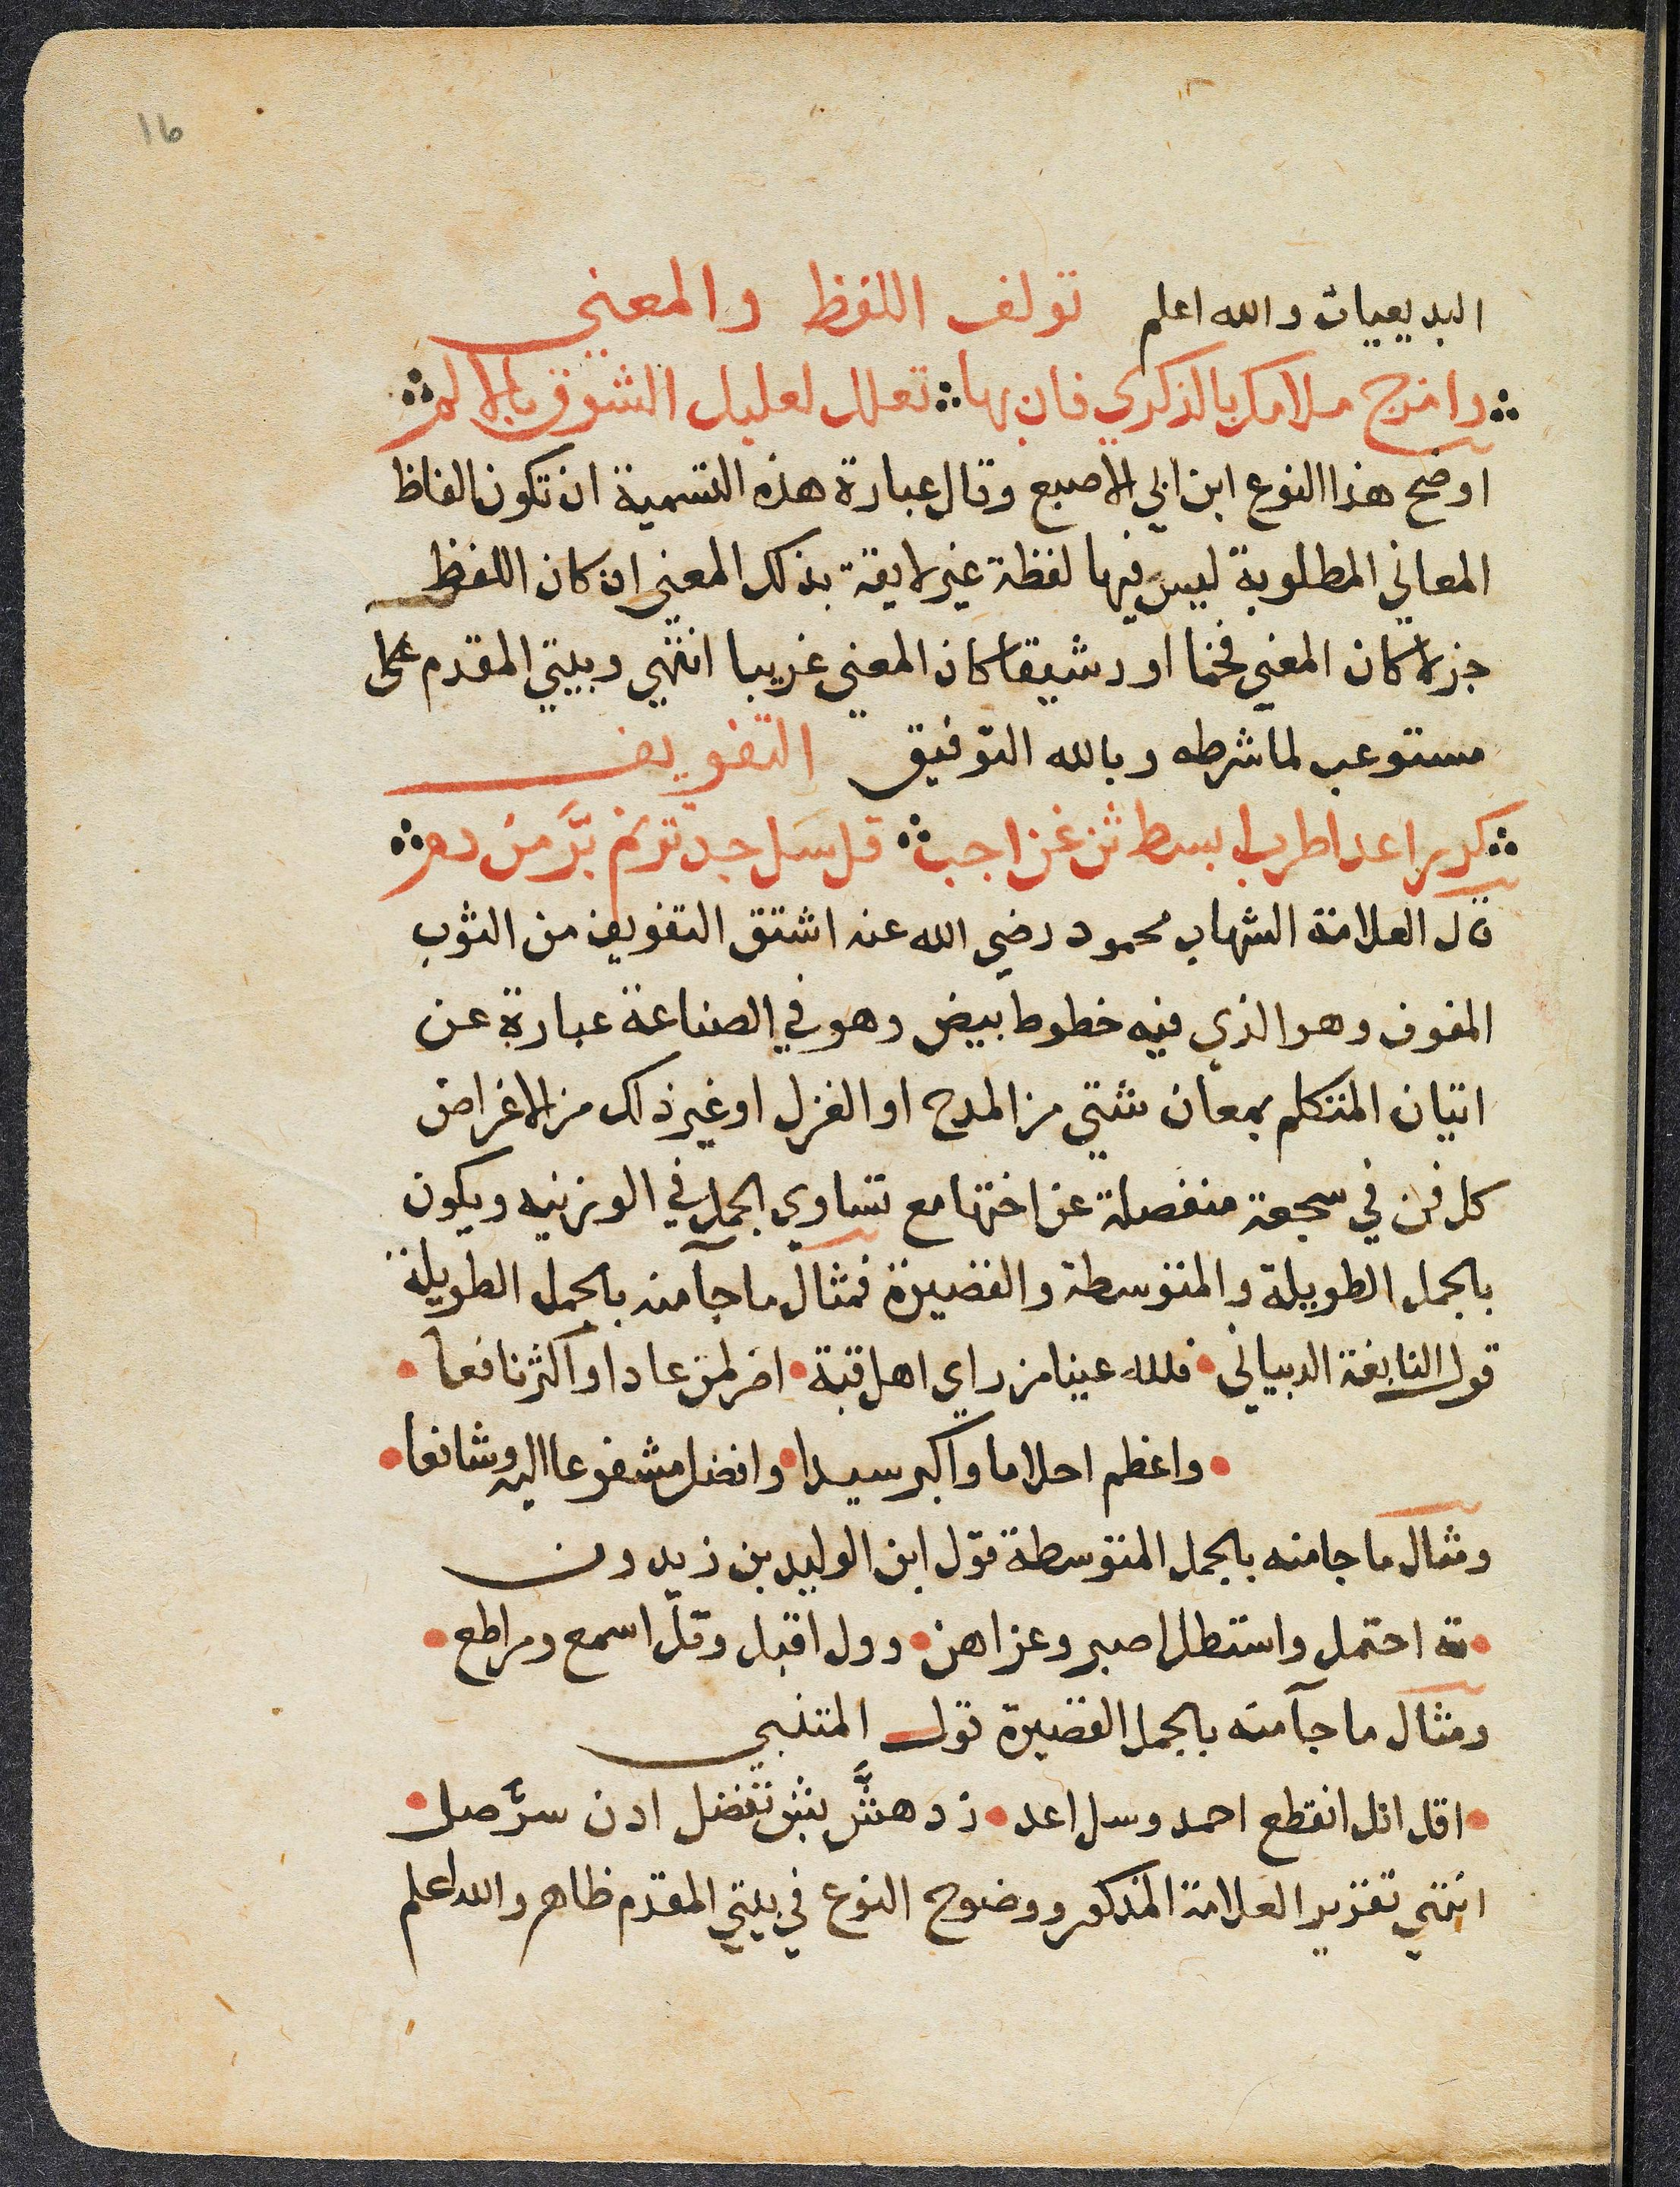 16
البديعيات والله اعلم تولف اللفظ والمعني
وامزج ملامك بالذكري فان بها تعلل لعليل الشوق بالالم
اوضح هذا النوع ابن ابي الاصبع وقال عبارة هذه التسمية ان تكون الفاظ
المعاني المطلوبة ليس فيها لفظة غير لايقة بذلك المعني ان كان اللفظ
جزلا كان المعني فخما او رشيقا كان المعني غريبا انتهي وبيتي المقدم على
مستوعب لما شرطه وبالله التوفيق التفويف
كرر اعد اطرب ابسط ثن غن اجب قل سل جد ترنم بر من دم
قال العلامة الشهاب محمود رضي الله عنه اشتق التفويف من الثوب
المفوف وهو الذي فيه خطوط بيض وهو في الصناعة عبارة عن
اتيان المتكلم بمعان شتي من المدح او الغزل او غير ذلك من الاغراض
كل فن في سجعة منفصلة عن اختها مع تساوي الجمل في الوزنيه ويكون
بالجمل الطويلة والمتوسطة والقصيرة فمثال ما جآ منه بالجمل الطويلة
قول النابغة الدبياني فلله عينا من راي اهل قبة اضر لمن عادا واكثر نافعا
واعظم احلاما واكبر سيدا وافضل مشفوعا اليه وشافعا
ومثال ما جا منه بالجمل المتوسطة قول ابن الوليد بن زيدون
ته احتمل واستطل اصبر وعز اهن وول اقبل وقل اسمع ومر اطع
ومثال ما جآ منه بالجمل القصيرة قول المتنبي
اقل انل انقطع احمد وسل اعد زد هش بش تفضل ادن سر صل
انتهي تقرير العلامة المذكور ووضوح النوع في بيتي المقدم ظاهر والله اعلم